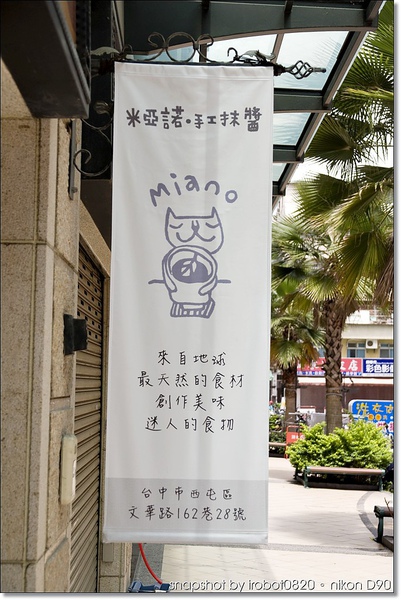 米亞諾•手工抹醬
miano
來自地球
最天然的食材
創作美味
迷人的食物
台中市西屯區
文華路162巷28號
彩色影像
洗衣店
snapshot by irobot0820。nikon D90